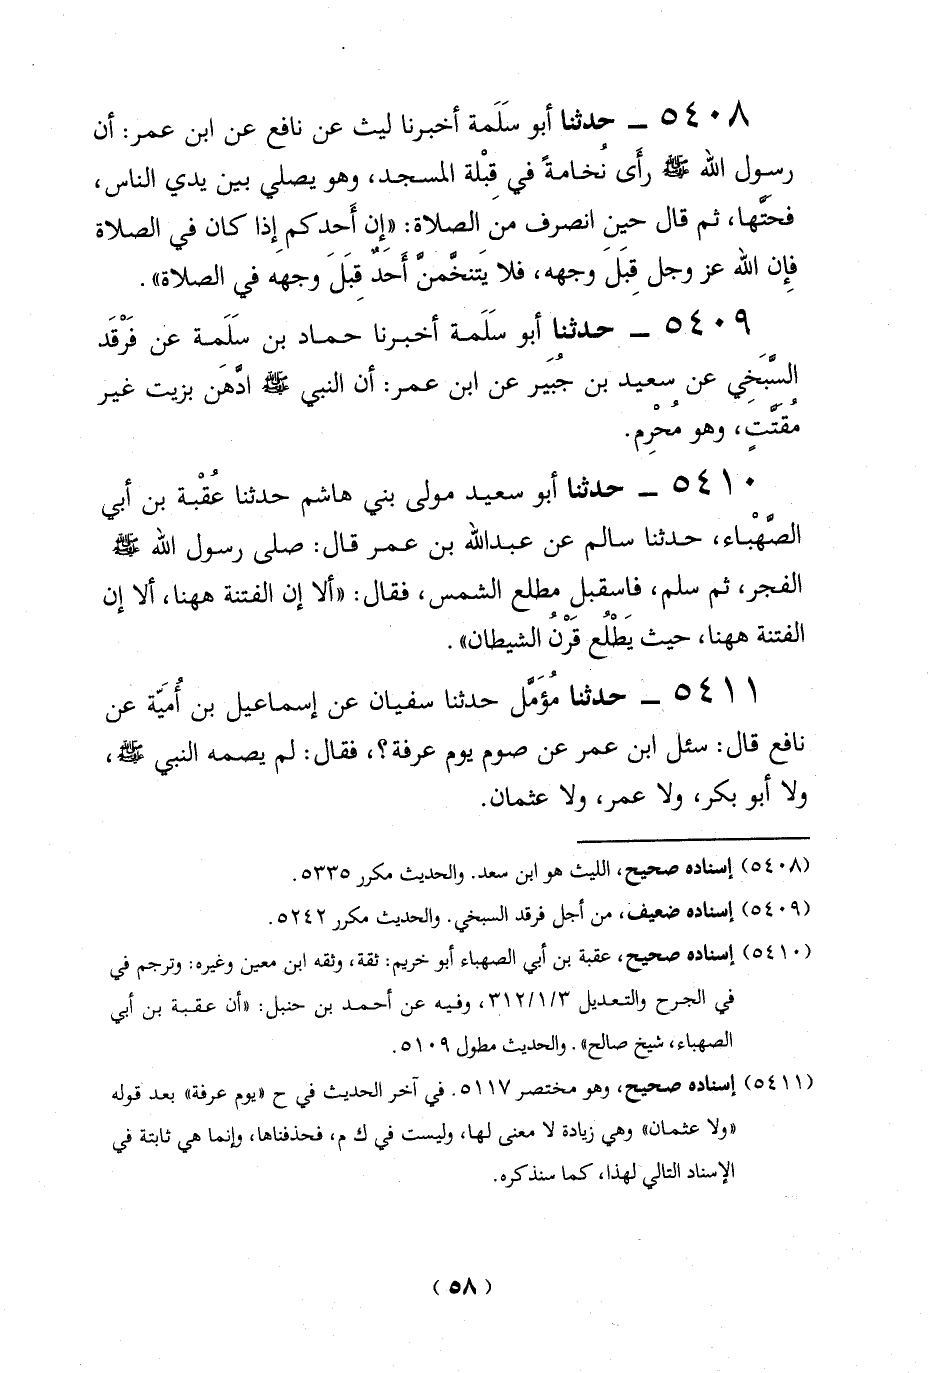 ٥٤٠٨ ــ حدثنا أبو سَلَمة أخبرنا ليث عن نافع عن ابن عمر: أن
رسول الله ﷺ رأَى نُخامةً في قِبْلة المسجد، وهو يصلي بين يدي الناس،
فحتَّها، ثم قال حين انصرف من الصلاة: «إن أَحدكم إذا كان في الصلاة
فإن الله عز وجل قِبَلَ وجهه، فلا يَتنخَّمنَّ أَحَدٌ قِبَلَ وجهه في الصلاة».
٥٤٠٩ ــ حدثنا أبو سَلَمة أخبرنا حماد بن سَلَمة عن فَرْقَد
السَّبَخي عن سعيد بن جُبَير عن ابن عمر: أن النبي ﷺ ادَّهَن بزيت غير
مُقَتَّتٍ، وهو مُحْرِم.
٥٤١٠ ــ حدثنا أبو سعيد مولى بني هاشم حدثنا عُقْبة بن أبي
الصَّهْباء، حدثنا سالم عن عبدالله بن عمر قال: صلى رسول الله ﷺ
الفجر، ثم سلم، فاسقبل مطلع الشمس، فقال: «ألا إن الفتنة ههنا، ألا إن
الفتنة ههنا، حيث يَطْلُع قَرْنُ الشيطان».
٥٤١١ ــ حدثنا مُؤَمَّل حدثنا سفيان عن إسماعيل بن أُمَيّة عن
نافع قال: سئل ابن عمر عن صوم يوم عرفة؟، فقال: لم يصمه النبي ﷺ،
ولا أبو بكر، ولا عمر، ولا عثمان.
(٥٤٠٨) إسناده صحيح، الليث هو ابن سعد. والحديث مكرر ٥٣٣٥.
(٥٤٠٩) إسناده ضعيف، من أجل فرقد السبخي. والحديث مكرر ٥٢٤٢.
(٥٤١٠) إسناده صحيح، عقبة بن أبي الصهباء أبو خريم: ثقة، وثقه ابن معين وغيره: وترجم في
في الجرح والتعديل ٣١٢/١/٣، وفيه عن أحمد بن حنبل: «أن عقبة بن أبي
الصهباء، شيخ صالح». والحديث مطول ٥١٠٩.
(٥٤١١) إسناده صحيح، وهو مختصر ٥١١٧. في آخر الحديث في ح «يوم عرفة» بعد قوله
«ولا عثمان» وهي زيادة لا معنى لها، وليست في ك م، فحذفناها، وإنما هي ثابتة في
الإسناد التالي لهذا، كما سنذكره.
(٥٨)